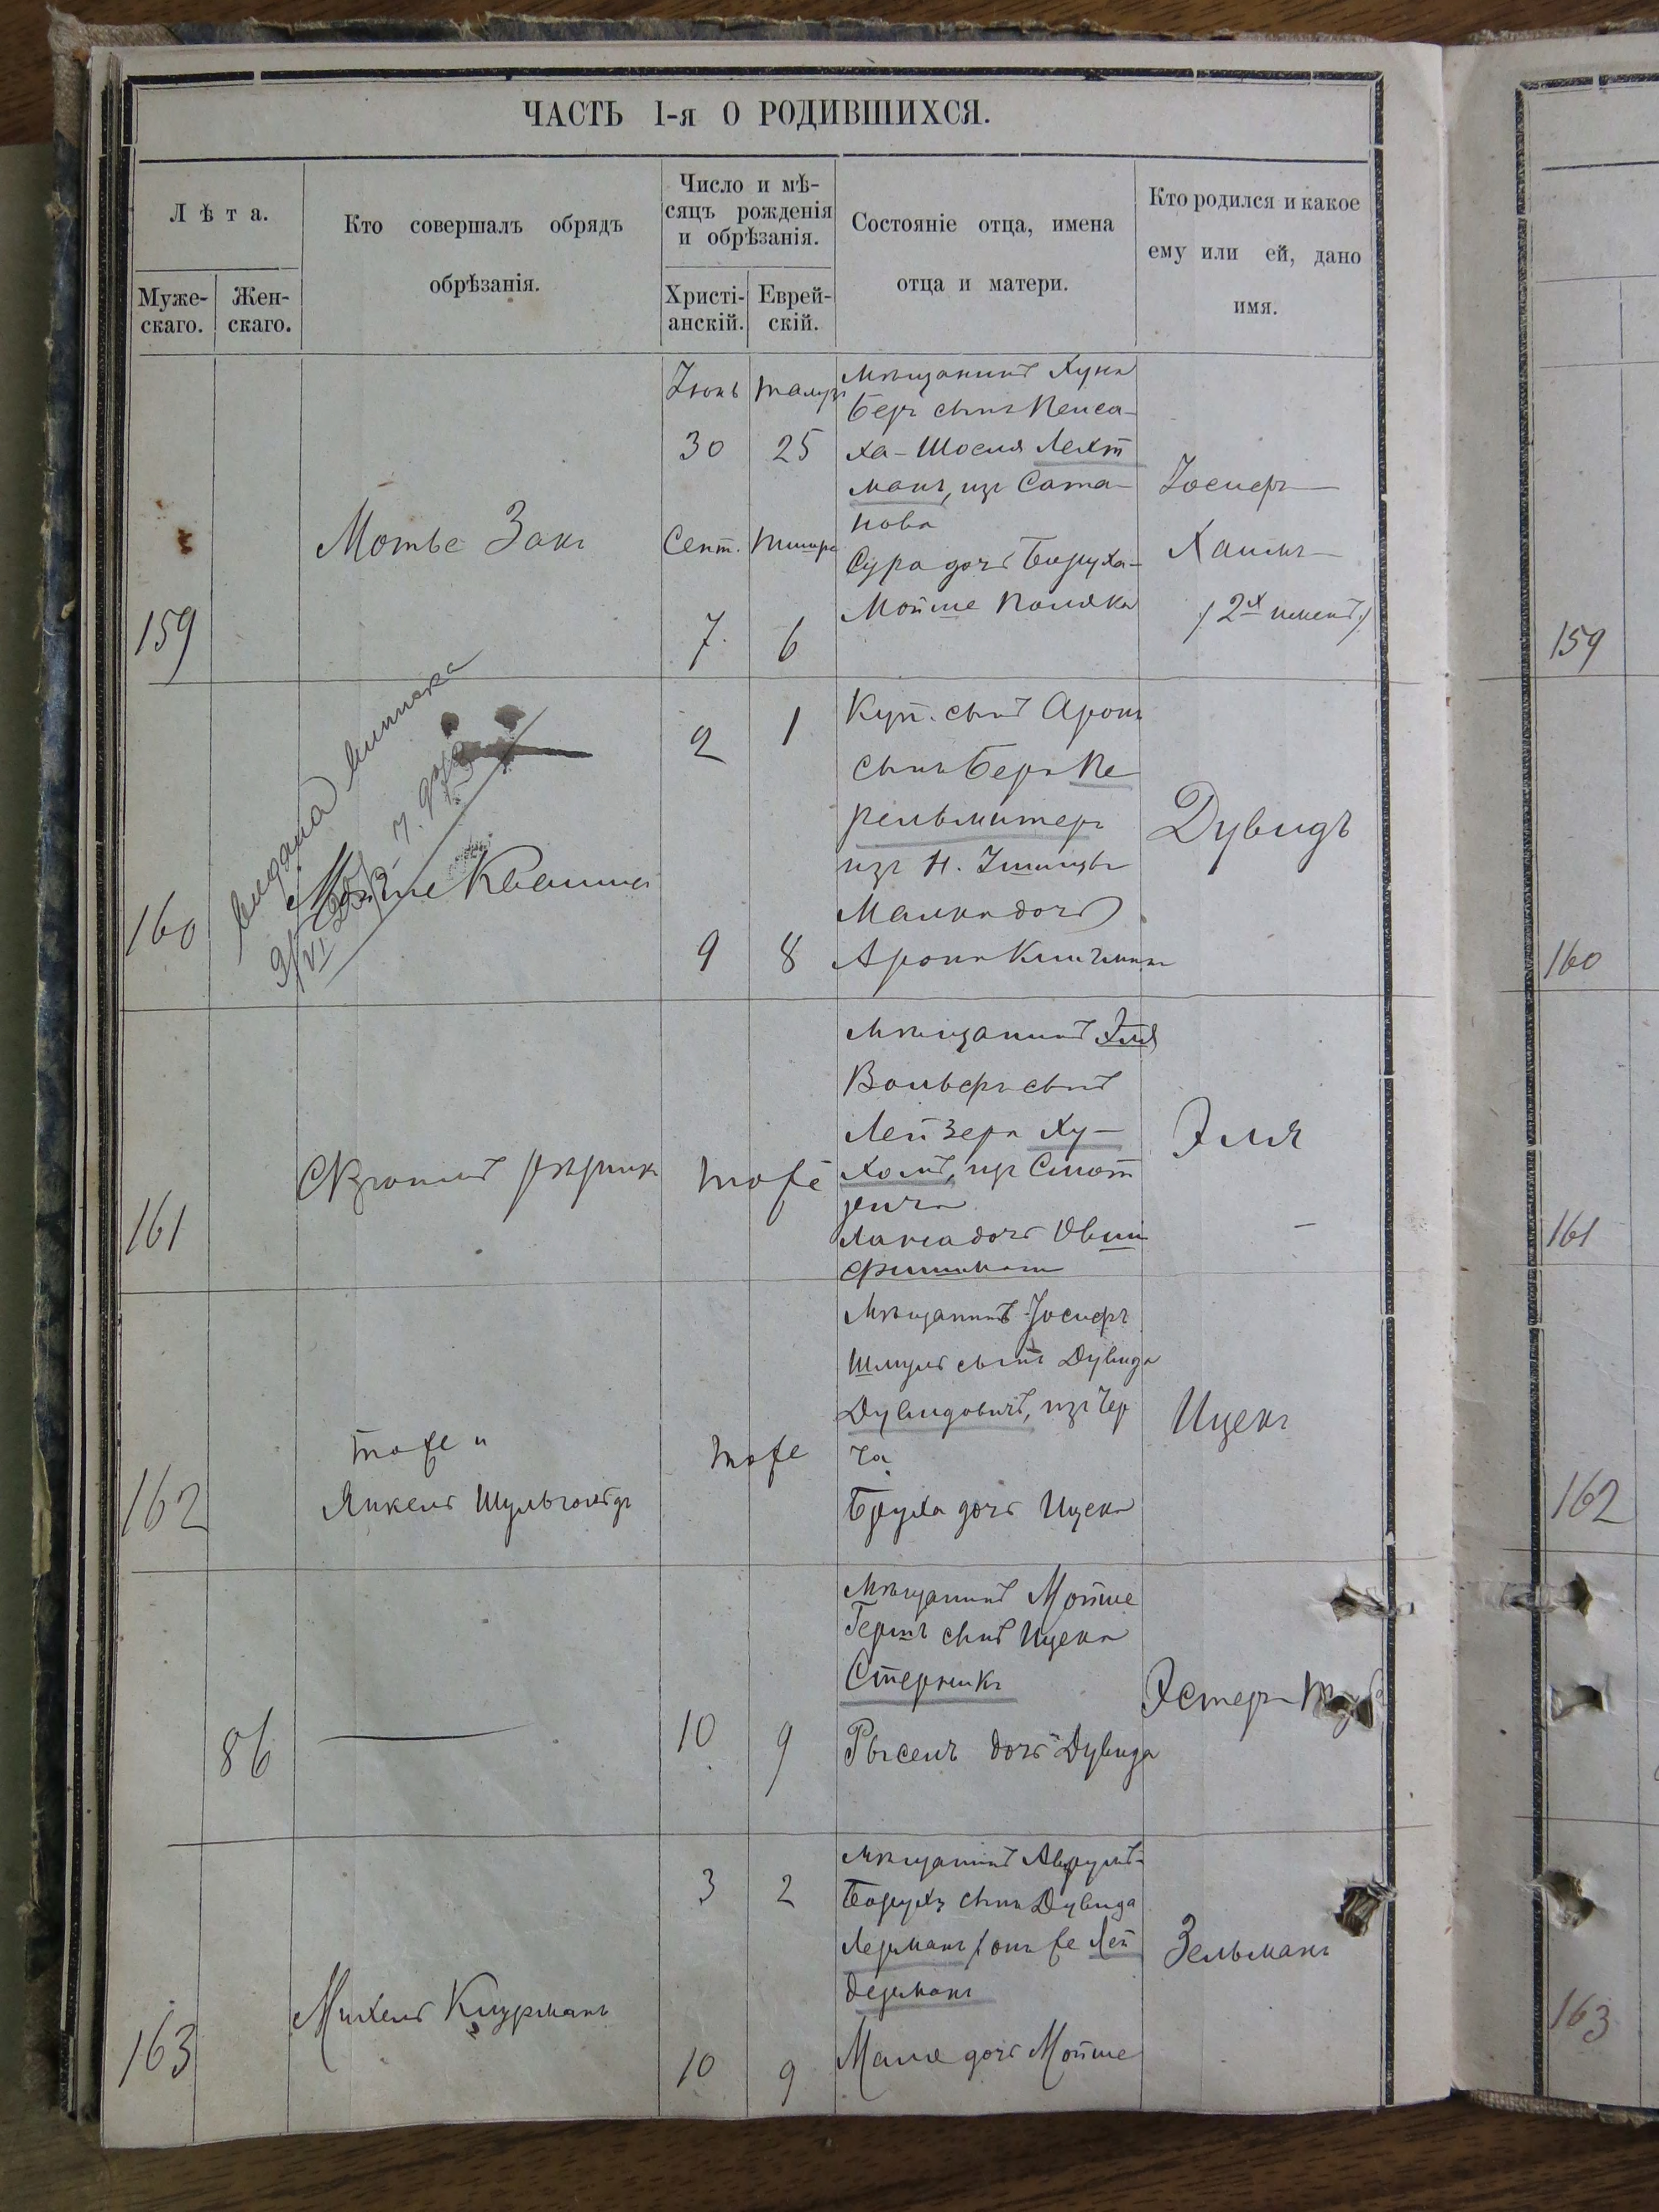 ЧАСТЬ I-я О РОДИВШИХСЯ.
Лѣта.
Муже-
скаго.
Жен-
скаго.
Кто совершалъ обрядъ
обрѣзанія.
Число и мѣ-
сяцъ рожденія
и обрѣзанія.
Христі-
анскій.
Еврей-
скій.
Состояніе отца, имена
отца и матери.
Кто родился и какое
ему или ей, дано
имя.
159
Мотье Закъ
Іюнь
30
Сент.
7.
Тамузъ
25
Тишре
6
Мѣщанинъ Хуна
Беръ сынъ Пейса-
ха-Шоеля Лехт
манъ, изъ Сата-
нова
Сура дочь Боруха-
Мойше Поляка
Іосифъ-
Хаимъ-
/2х именъ/
159
160
выдана выписка
Мойше Квашша
2
9
1
8
Куп. сынъ Аронъ
сынъ Бера Пе
рельмитеръ
изъ Н. Ушицы
Малка дочь
Арона
Дувидъ
160
161
тоже
Мѣщанинъ Эля
Вольфъ сынъ
Лейзера Ху-
холъ, изъ Смот
рича
дочь
Эля
161
162
тоже и
Янкель Шульгольдъ
тоже
Мѣщанинъ Іосифъ
Шмуль сынъ Дувида
Дувидовичъ, изъ Чер
ча
Бруха дочь Ицека
Ицекъ
162
86
10
9
Мѣщанинъ Мойше
Гершъ сынъ Ицека
Стерникъ
Рысель дочь Дувида
Эстеръ
163
Михель Кицурманъ
3
10
2
9
Мѣщанинъ Аврумъ-
Борухъ сынъ Дувида
Лерманъ / онъ же Лей
дерманъ
Маля дочь Мойше
Зельманъ
163